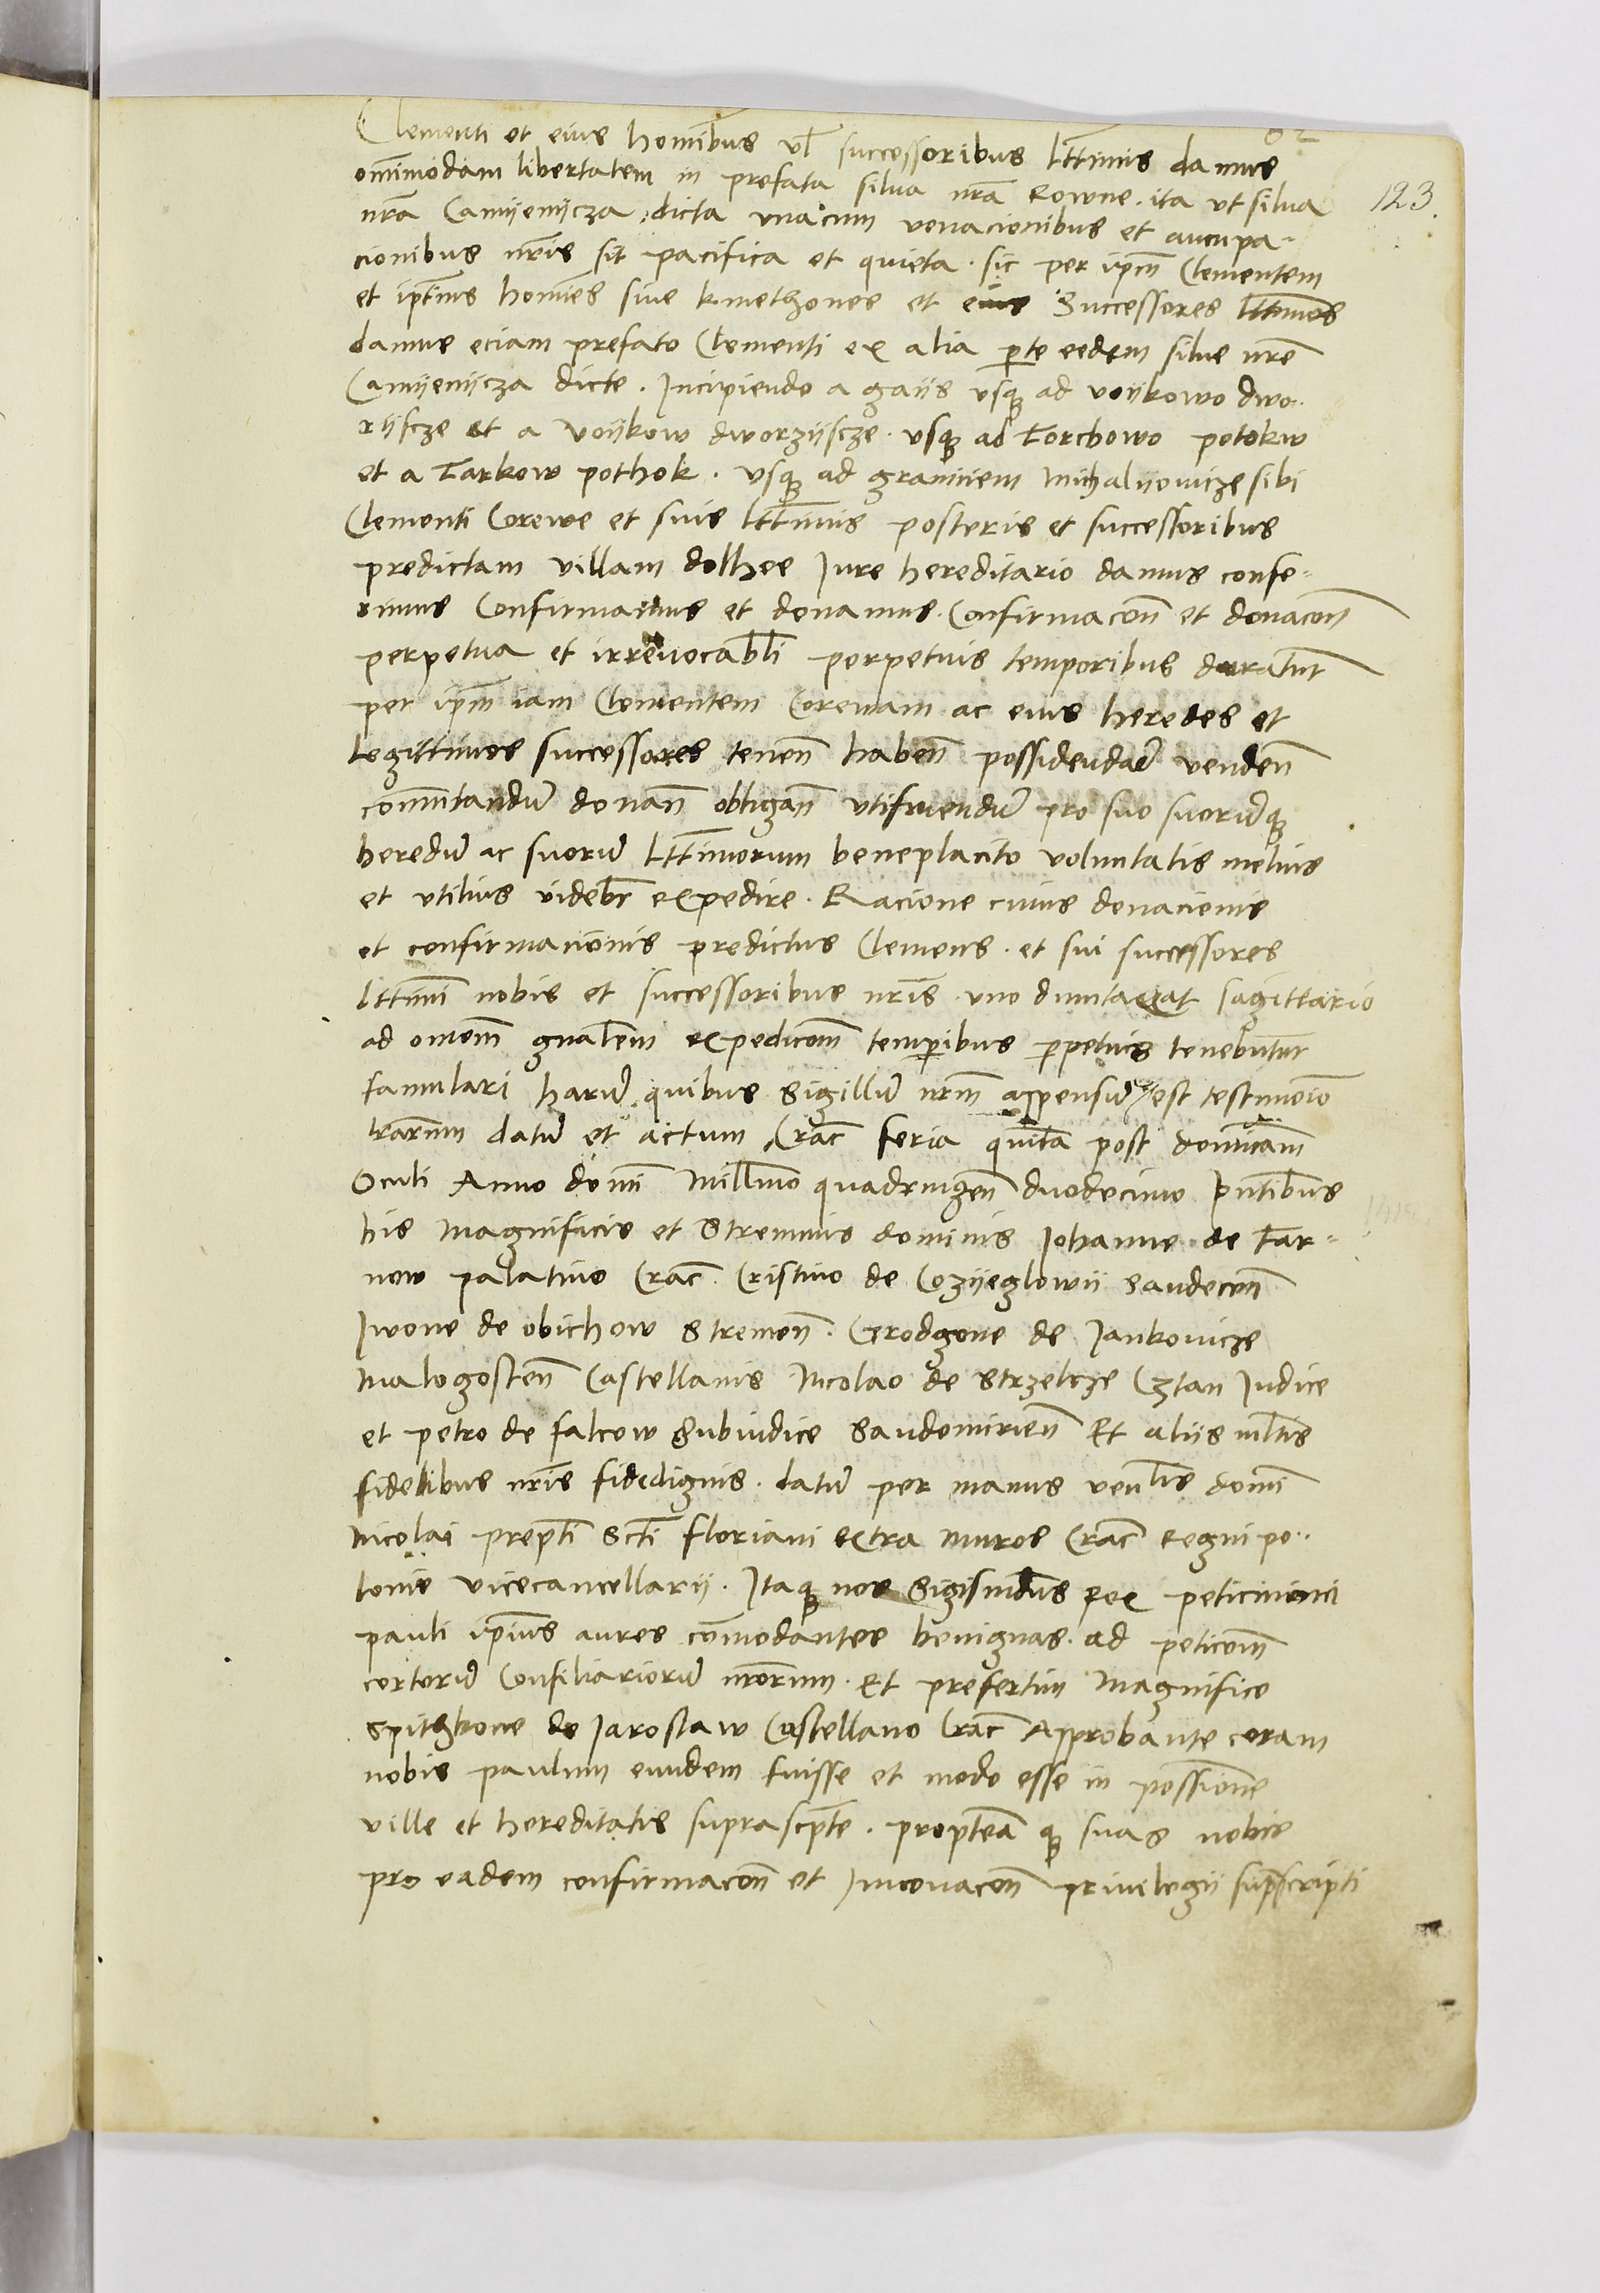 Clementi et eius hominibus vl successoribus lttimis damus
omimodam libertatem in prefata silua nra Rowne . ita vt silua
123.
nra Camijenijcza dicta vnacum venacionibus et aucupa-
cionibus nris sit pacifica et quieta . sic per ipm Clementem
et ipius homies siue kmethones et eius Successores lttimos
damus eciam prefato Clementi ex alia pte eedem silue nre
Camijenijcza dicte . Incipiendo a gaijs vsq ad voijkowo dwo-
rijscze et a voijkow dworzijscze . vsq ad Torchowo potokw
et a Tarkow pothok . vsq ad graniciem Michalijovicze sibi
Clementi Corewe et suis lttimis posteris et successoribus
predictam villam dolhee Iure hereditario damus confe-
rimus Confirmamus et donamus . Confirmacon et donacon
perpetua et irreuocabli perpetuis temporibus duratur
per ipm iam Clementem Corewam ac eius heredes et
legittimos successores tenen haben possidendu venden
comutandu donan obligan vtifruendu pro suo suoruq
heredu ac suoru lttimorum beneplacito voluntatis melius
et vtilius videbr expedire . Racione cuius donacionis
et confirmacionis predictus Clemens . et sui successores
lttimi nobis et successoribus nris vno dumtaxat sagittario
ad omem gnalem expedicom temporibus ppetuis tenebutur
famulari haru quibus Sigillu nrm appensu est testimonio
lrarum datu et actum Crac feria quita post dominicam
Oculi Anno domi Millimo quadringen duodecimo pntibus
his Magnificis et Strennuis dominis Iohanne de Tar-
now palatino Crac Cristino de Cozijeglowij Sandecen
Iwone de obichow Stremen . Grodzone de Iankovicze
Malogosten Castellanis Nicolao de Strzelcze Cztan Iudice
et petro de falcow Subiudice Sandomirien Et aliis mltis
fidelibus nris fidedignis . datu per manus venlis domi
Nicolai prepti Scti floriani extra muros Crac Regni po-
lonie vicecancellarij . Itaq nos Sigismudus Rex
pauli ipius aures comodantes benignas . ad peticom
certoru Consiliarioru nrorum . Et presertim Magnifico
Spithkone de Iaroslaw Castellano Crac Approbante coram
nobis paulum eundem fuisse et modo esse in possione
ville et hereditatis suprascpte . proptea q suas nobis
pro eadem confirmacon et Innouacon priuilegij supscripti